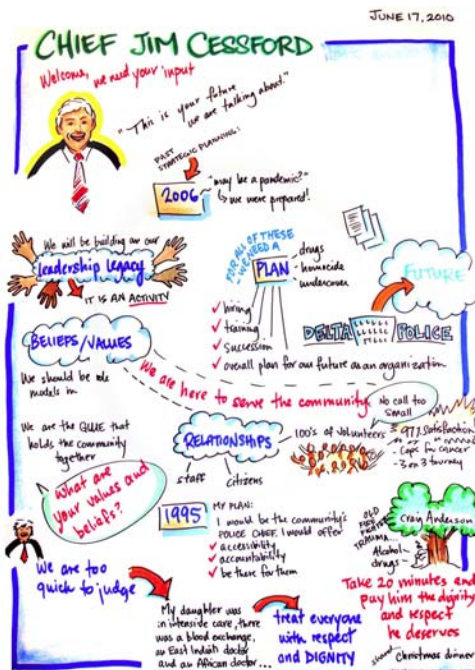 JUNE 17, 2010
CHIEF JIM CESSFORD
Welcome, we need your input
"This is your future
we are talking about."
PAST
STRATEGIC PLANNING:
2006
"may be a pandemic?"
↳ we were prepared!
We will be building on our
Leadership Legacy
IT IS AN ACTIVITY
FOR ALL OF THESE
WE NEED A
PLAN
- drugs
- homicide
- undercover
✓ hiring
✓ training
✓ succession
✓ overall plan for our future as an organization
FUTURE
DELTA POLICE
BELIEFS/VALUES
We should be role
models in
We are the GLUE that
holds the community
together
We are here to serve the community
No call too
small
RELATIONSHIPS
staff
citizens
100's of volunteers
97% satisfaction
- Cops for cancer
- 3 on 3 tourney
What are
your values and
beliefs?
1995
MY PLAN:
I would be the community's
POLICE CHIEF. I would offer
✓ accessibility
✓ accountability
✓ be there for them
OLD
FIRE FIGHTER
TRAUMA...
Alcohol
drugs
Craig Anderson
We are too
quick to judge
My daughter was
in intensive care, there
was a blood exchange,
an East Indian doctor
and an African doctor...
treat everyone
with respect
and DIGNITY
Take 20 minutes and
pay him the dignity
and respect
he deserves
Christmas dinner